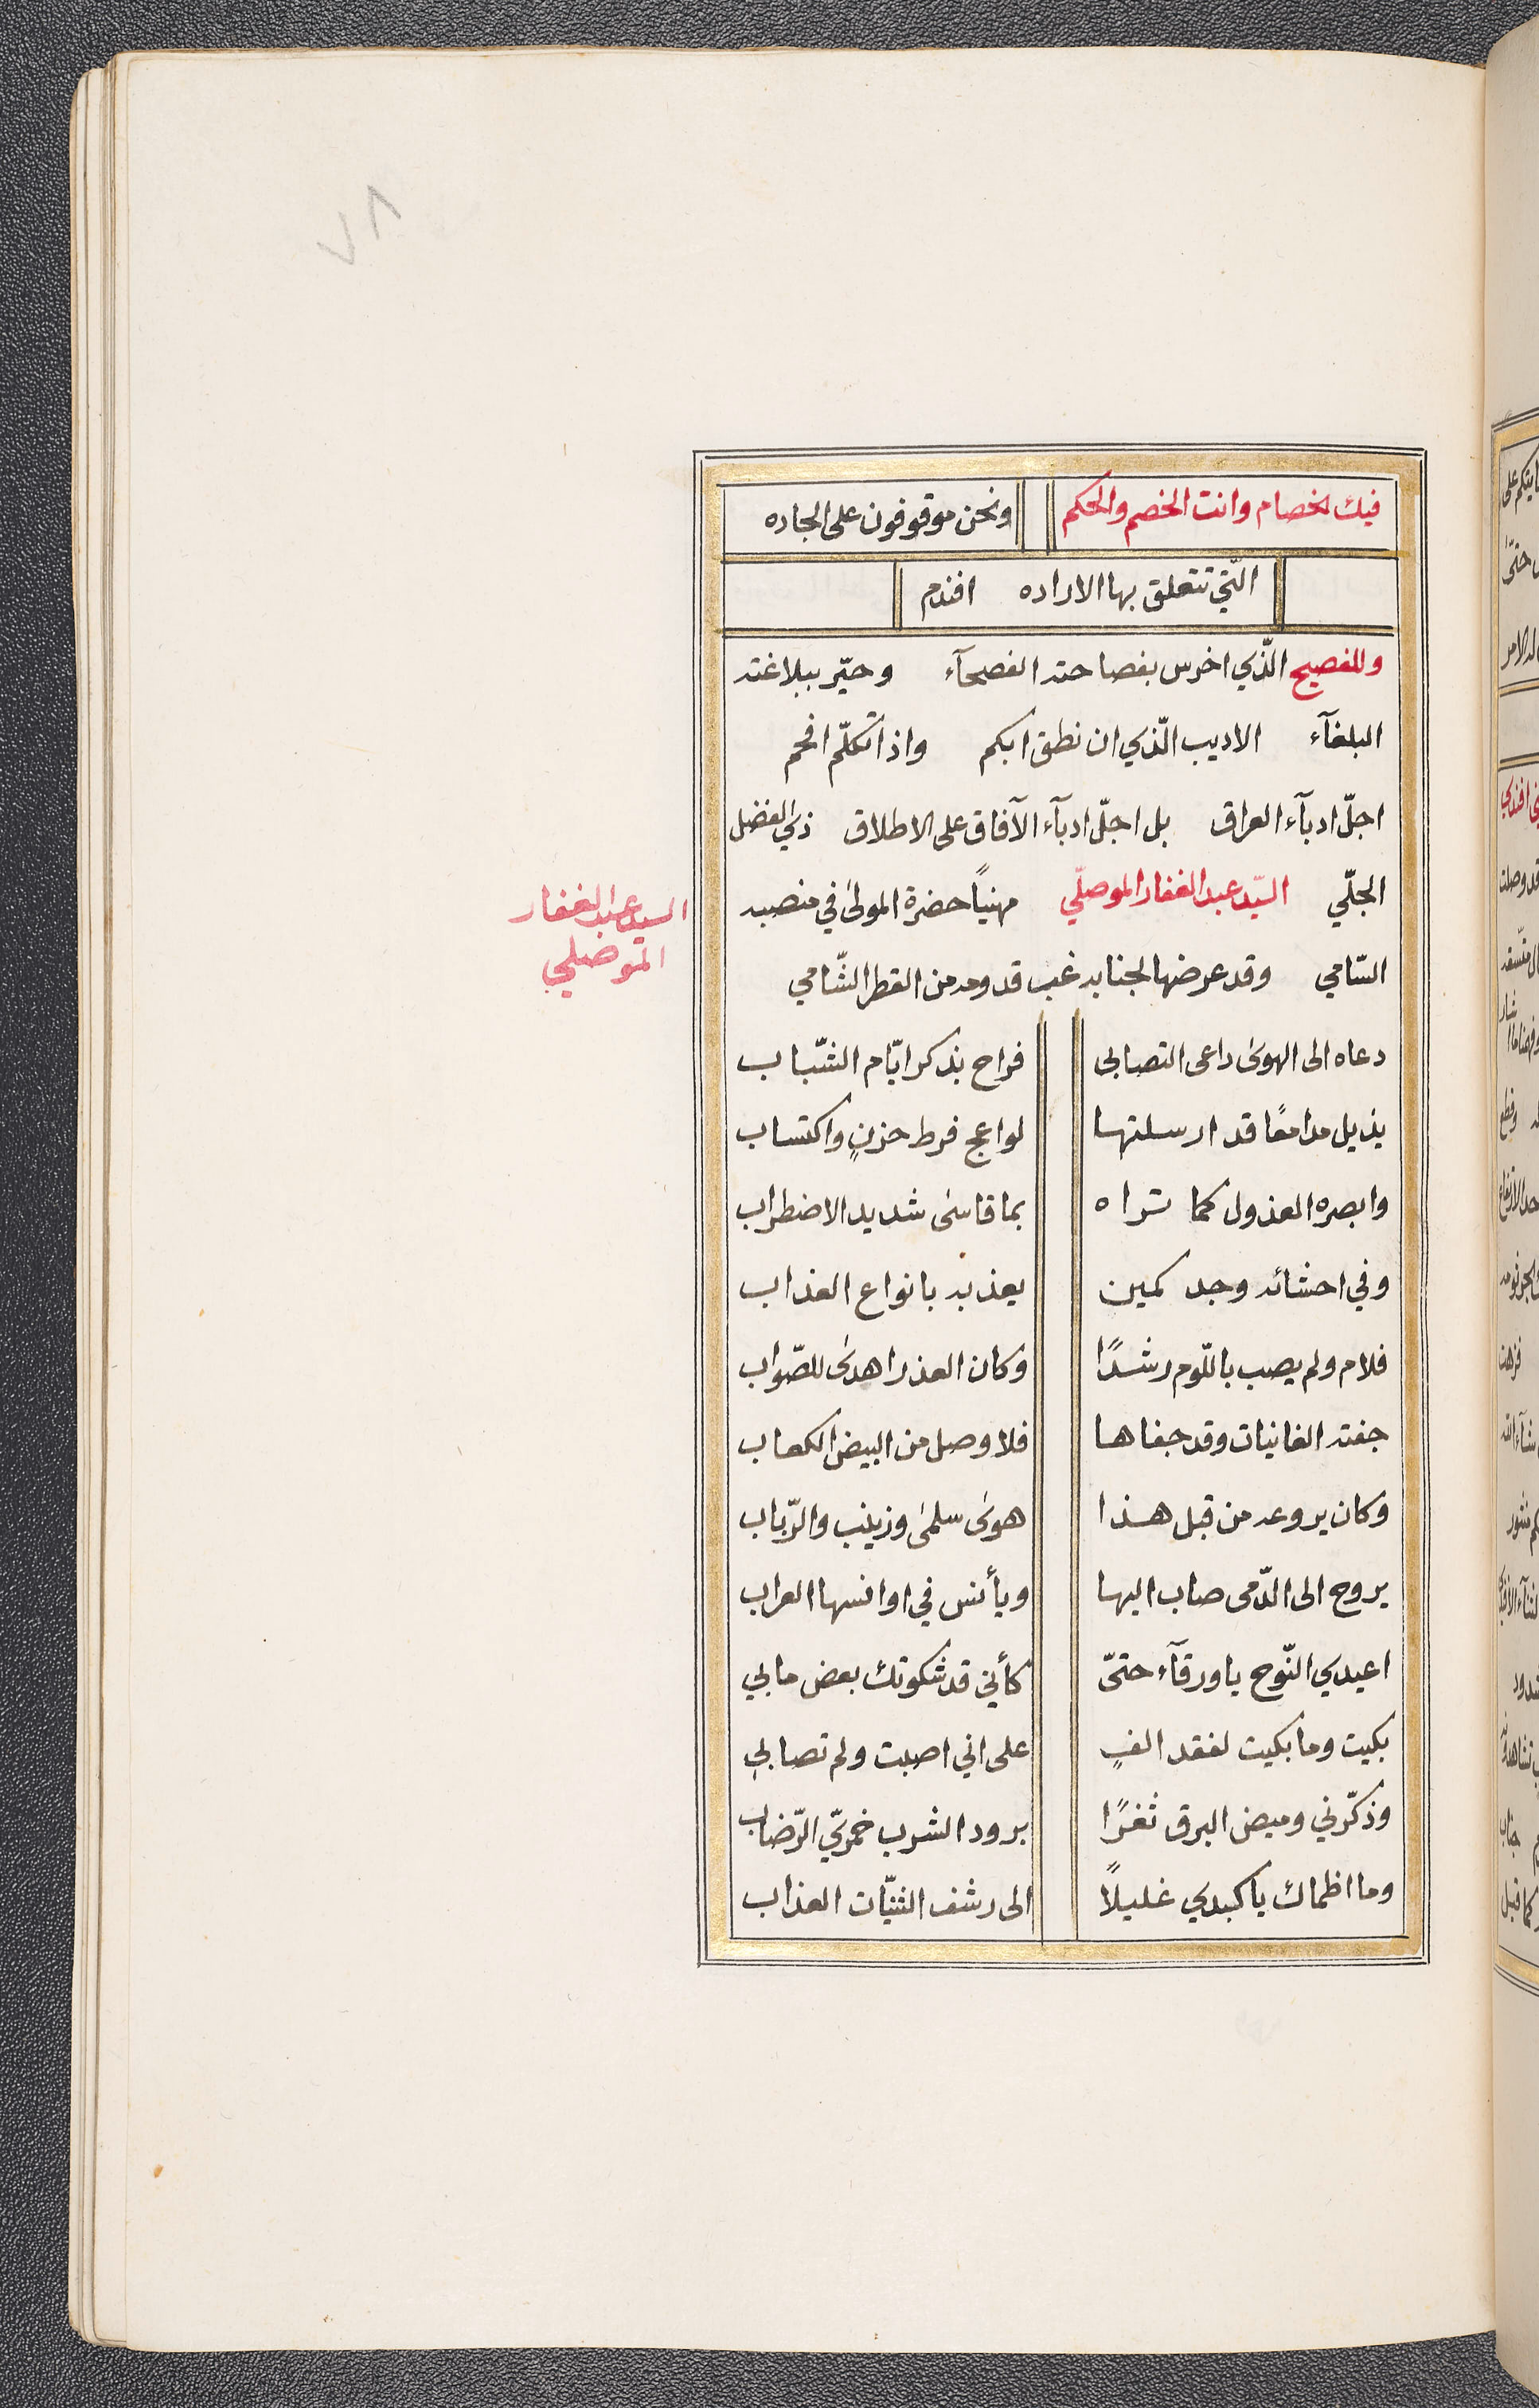 ٧٨
فيك الخصام وانت الخصم والحكم ونحن موقوفون على الجاده
الّتي تتعلق بها الاراده افندم
وللفصيح الّذي اخرس بفصاحته الفصحآء وحيّر ببلاغته
البلغآء الاديب الّذي ان نطق ابكم واذا تكلّم افحم
اجلّ ادبآء العراق بل اجلّ ادبآء الآفاق على الاطلاق ذي الفضل
الجلّي السيّد عبد الغفار الموصلّي مهنياً حضرة المولى في منصبه
السيد عبد الغفار
الموصلي
السّامي وقد عرضها لجنابه غب قدومه من القطر الشّامي
دعاه الى الهوى داعى التصابى فراح بذكر ايّام الشّباب
يذيل مدامعًا قد ارسلتها لواعج فرط حزنٍ واكتساب
وابصره العذول كما تراه بما قاسى شديد الاضطراب
وفي احشائه وجد كمين يعذبه بانواع العذاب
فلام ولم يصب باللّوم رشدًا وكان العذر اهدى للصّواب
جفته الغانيات وقد جفاها فلا وصل من البيض الكعاب
وكان يروعه من قبل هذا هوى سلمى وزينب والرّباب
يروح الى الدّمى صاب اليها ويأنس في اوانسها العراب
اعيدي النّوح يا ورقآء حتىّ كأني قد شكوتك بعض مابي
بكيت وما بكيت لفقد الفٍ على اني اصبت ولم تصابي
وذكّرني وميض البرق ثغرًا برود الشرب خمريّ الرّضاب
وما اظماك يا كبدي غليلاً الى رشف الثنيّات العذاب